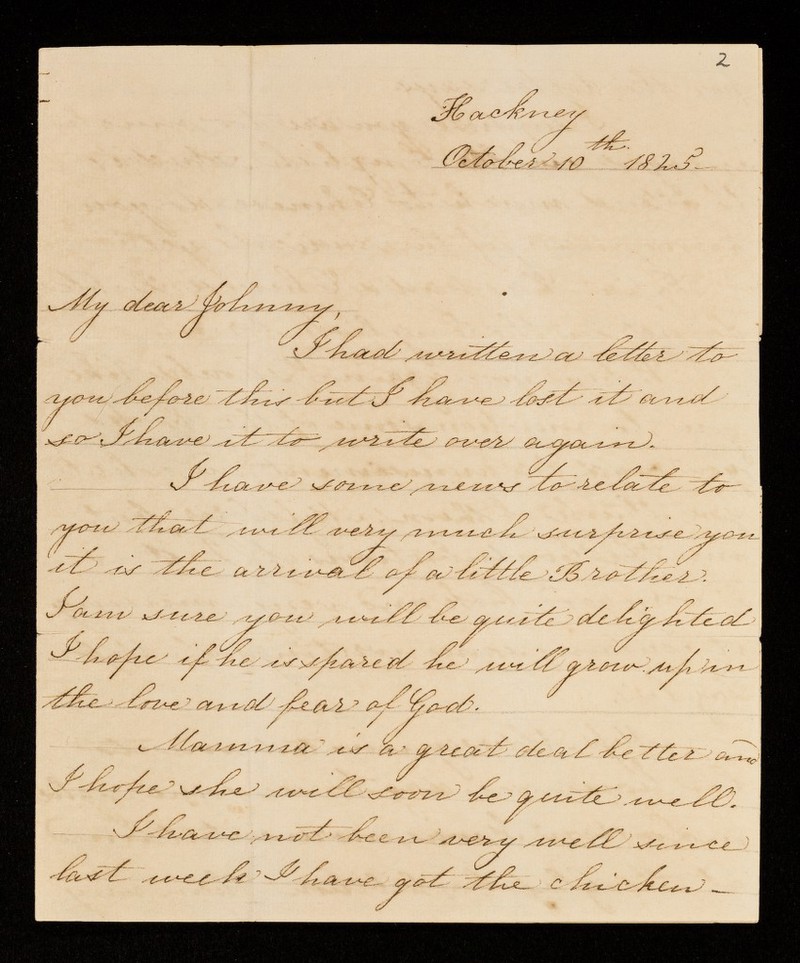 2
Hackney
October 10th 1825-
My dear Johnny,
I had written a letter to
you before this but I have lost it and
so I have it to write over again.
I have some news to relate to
you that will very much surprise you
it is the arrival of a little Brother.
I am sure you will be quite delighted
I hope if he is spared he will grow up in
the love and fear of God.
Mamma is a great deal better and
I hope she will soon be quite well.
I have not been very well since
last week I have got the chicken-